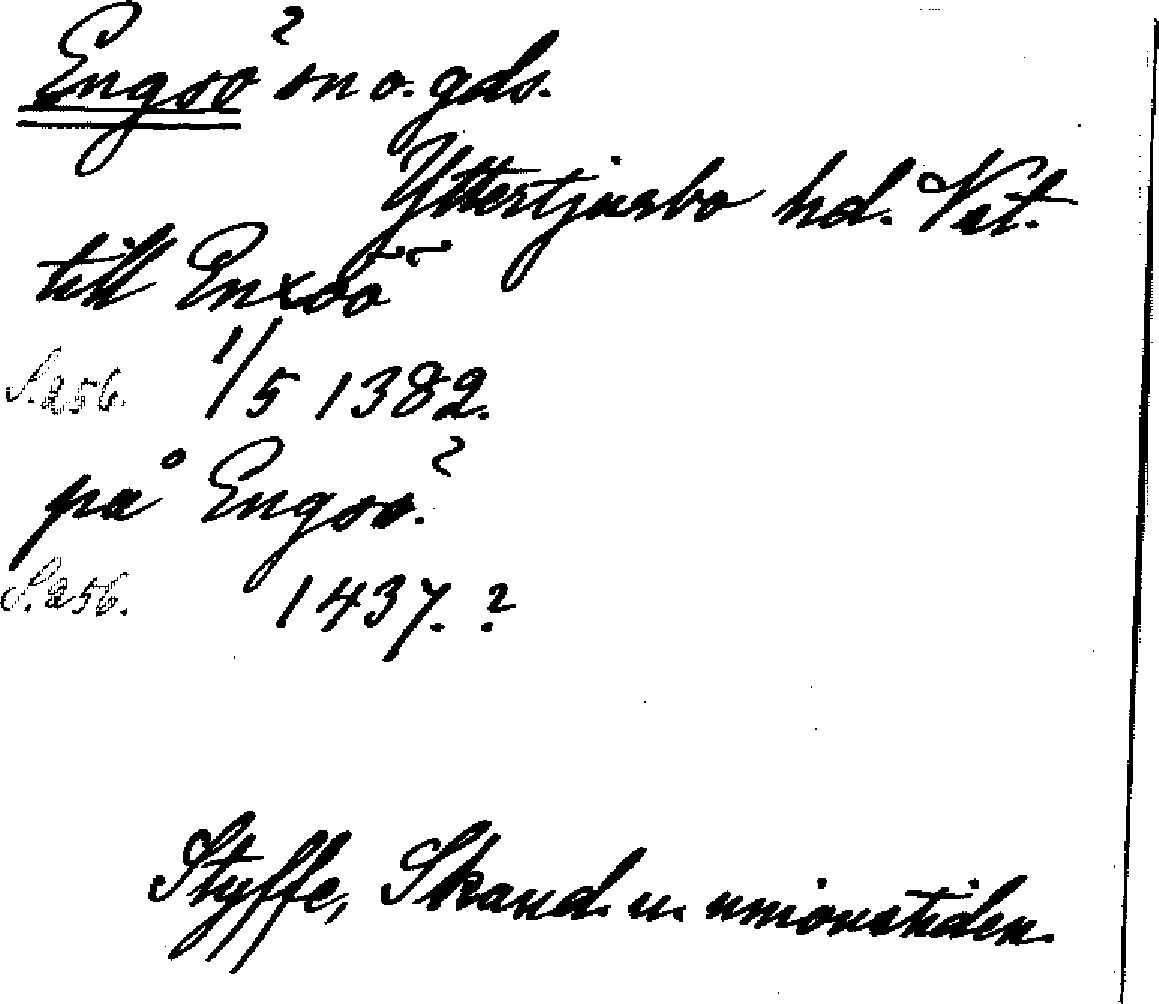 Engsö sn o. gds.
Yttertjurbo hd. Vst.
till Enxöö
S. 256. 1/5 1382.
på Engsö.
S. 256. 1437. ?
Styffe, Skand. u. unionstiden.